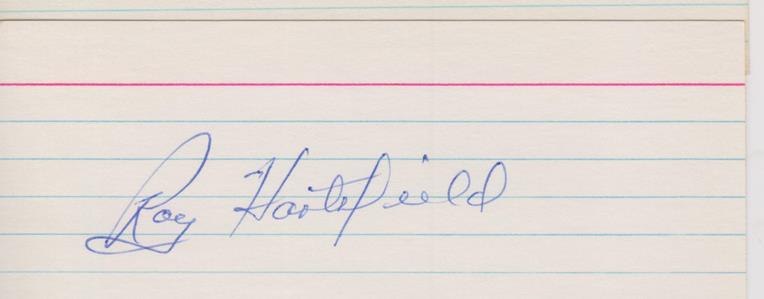 Roy Hartsfield